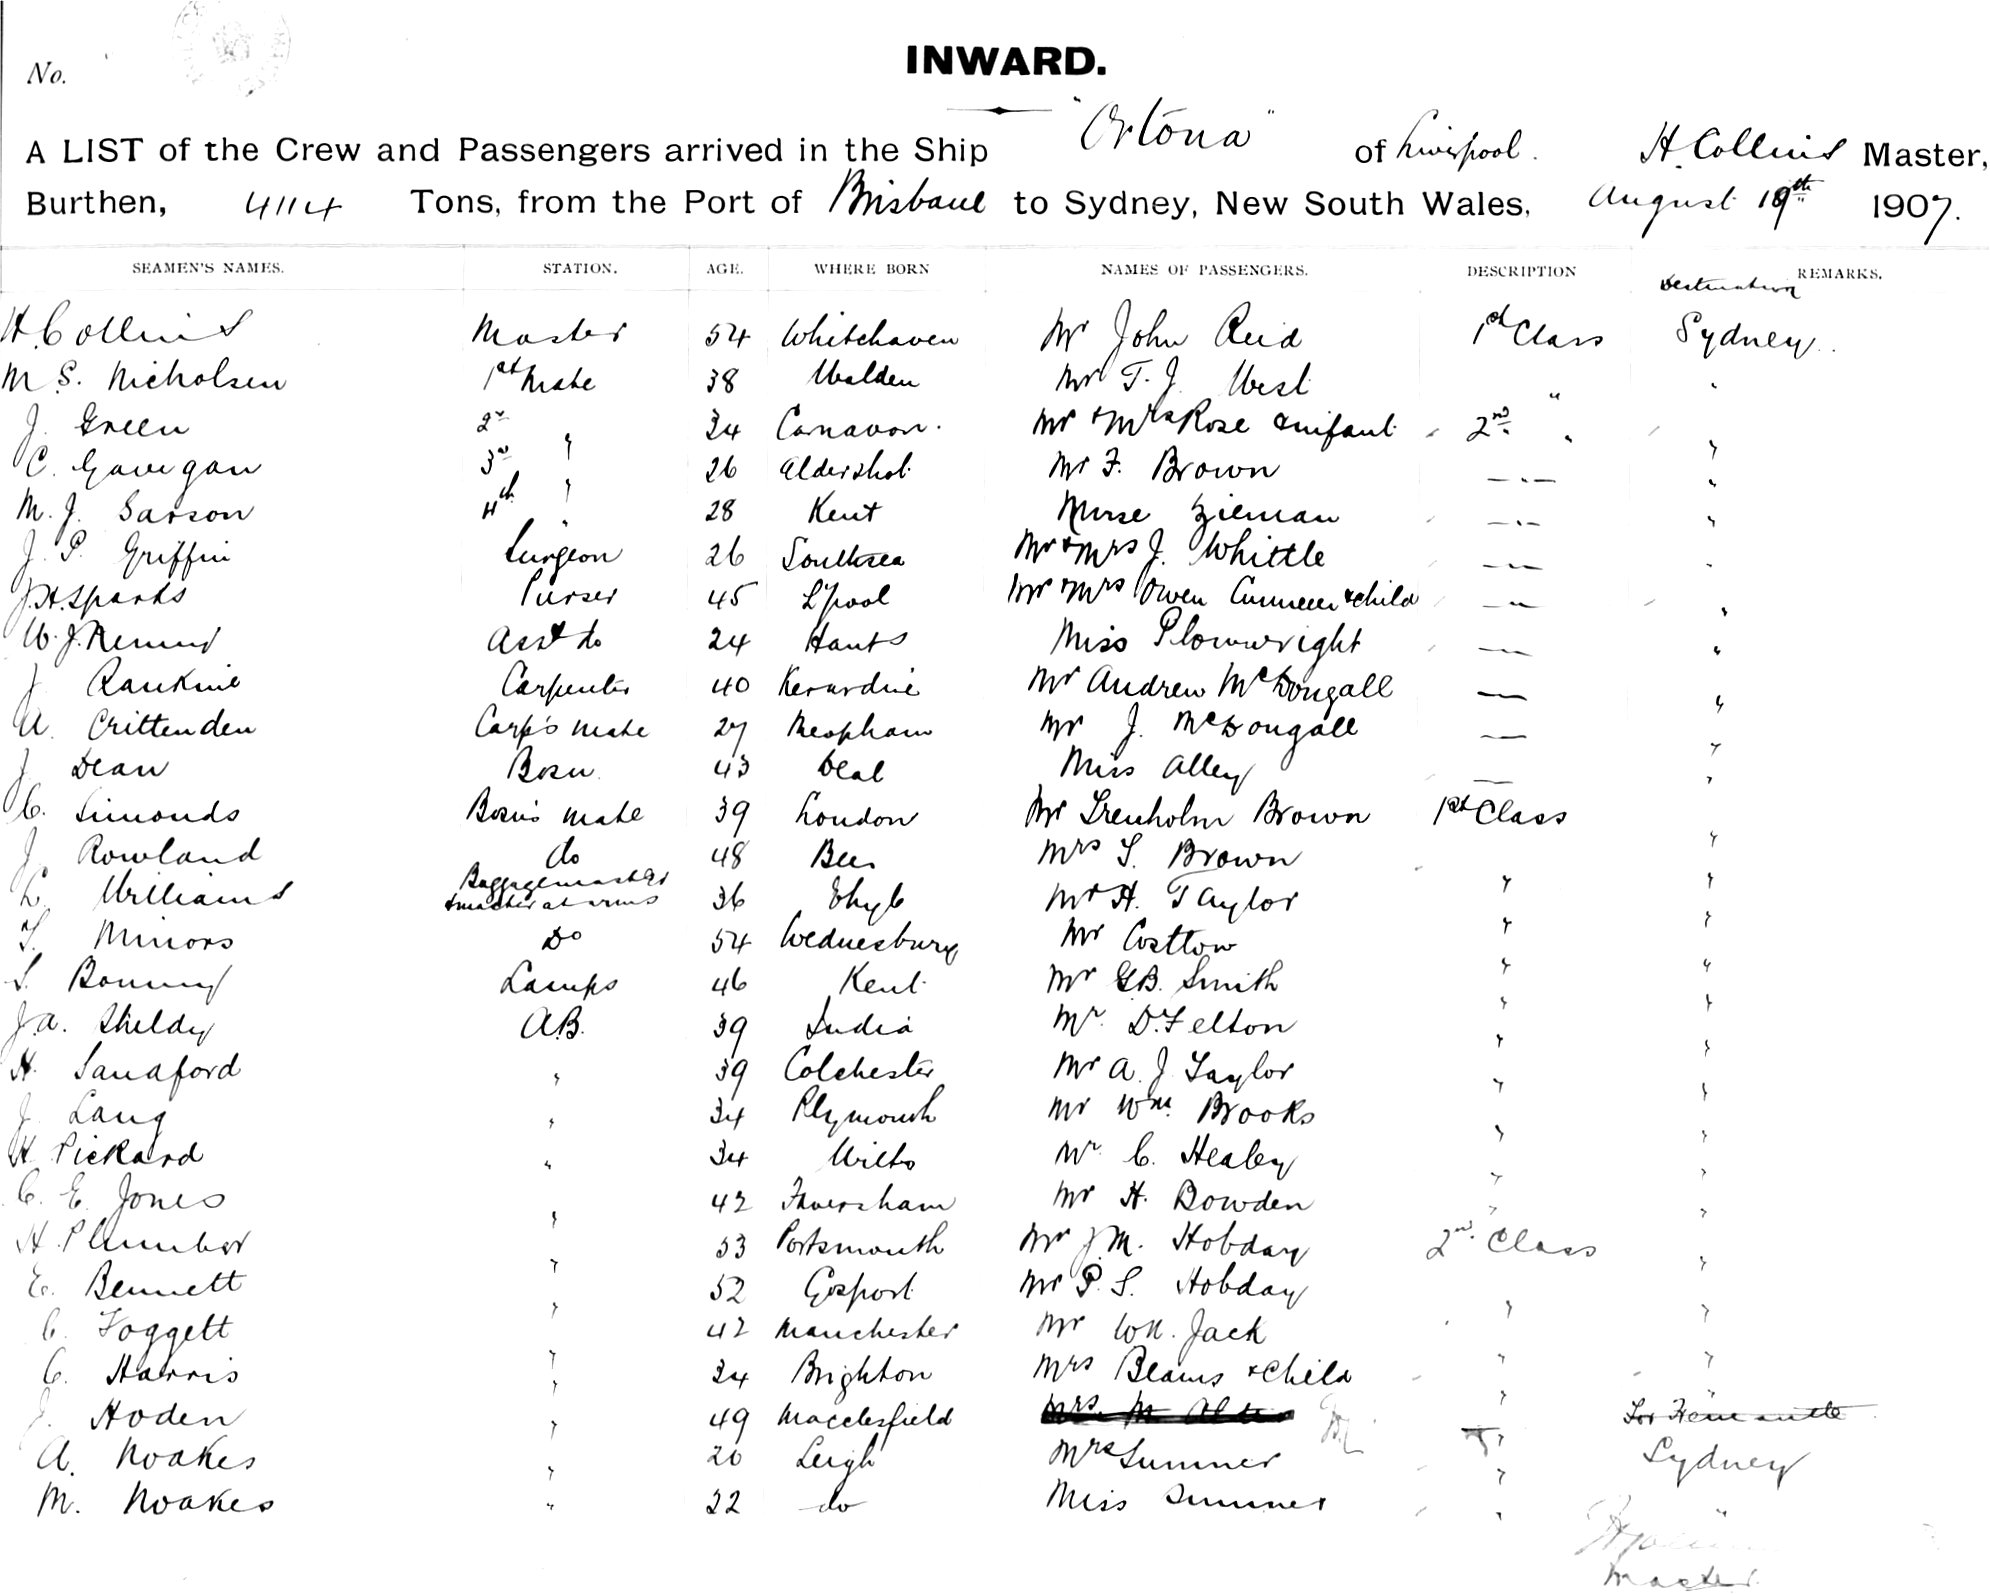 No.
INWARD.
A LIST of the Crew and Passengers arrived in the Ship "Ortona" of Liverpool. H. Collins Master,
Burthen, 4114 Tons, from the Port of Brisbane to Sydney, New South Wales, August 19th 1907.
SEAMEN'S NAMES. STATION. AGE. WHERE BORN NAMES OF PASSENGERS. DESCRIPTION Destination REMARKS.
H. Collins Master 54 Whitehaven Mr John Reid 1st Class Sydney.
M S. Nicholsen 1st Mate 38 Walden Mr T. J. West " "
J. Green 2nd " 34 Carnavon. Mr & Mrs Rose & infant 2nd " "
C. Gavegan 3rd " 26 Aldershot Mr F. Brown — " — "
M. J. Sarson 4th " 28 Kent Nurse Zieman — " — "
J. P. Griffin Surgeon 26 Southsea Mr & Mrs J. Whittle — " — "
J. H. Sparks Purser 45 L'pool Mr & Mrs Owen & child — " — "
W. J. Asst do 24 Hants Miss Plowwright — "
J. Rankine Carpenter 40 Mr Andrew McDougall — "
A. Crittenden Carp's Mate 27 Meopham Mr J. McDougall — "
J. Dean Bosn. 43 Deal Miss Alley — "
C. Simonds Bosn's Mate 39 London Mr Trenholm Brown 1st Class
J. Rowland do 48 Mrs T. Brown "
L. Williams Baggagemaster & master at arms 36 Mr H. Taylor " "
T. Minors Do 54 Wednesbury Mr Costtow " "
S. Lamps 46 Kent Mr G.B. Smith " "
J. A. Sheldy A.B. 39 India Mr. D. Felton " "
H. Sandford " 39 Colchester Mr A. J. Taylor " "
J. Lang " 34 Plymouth Mr Wm. Brooks " "
H. Pickard " 34 Wilts Mr. C. Healey " "
C. E. Jones " 42 Faversham Mr H. Bowden " "
H. Plumber " 53 Portsmouth Mr J. M. Hobday 2nd Class "
E. Bennett " 52 Gosport Mr P. S. Hobday " "
C. Foggett " 42 Manchester Mr Wm. Jack " "
C. Harris " 34 Brighton Mrs Beams & child " "
J. Hoden " 49 Macclesfield Mrs. M For Fremantle
A. Noakes " 20 Leigh Mrs Sumner " Sydney
M. Noakes " 22 do Miss Sumner " "
Master.